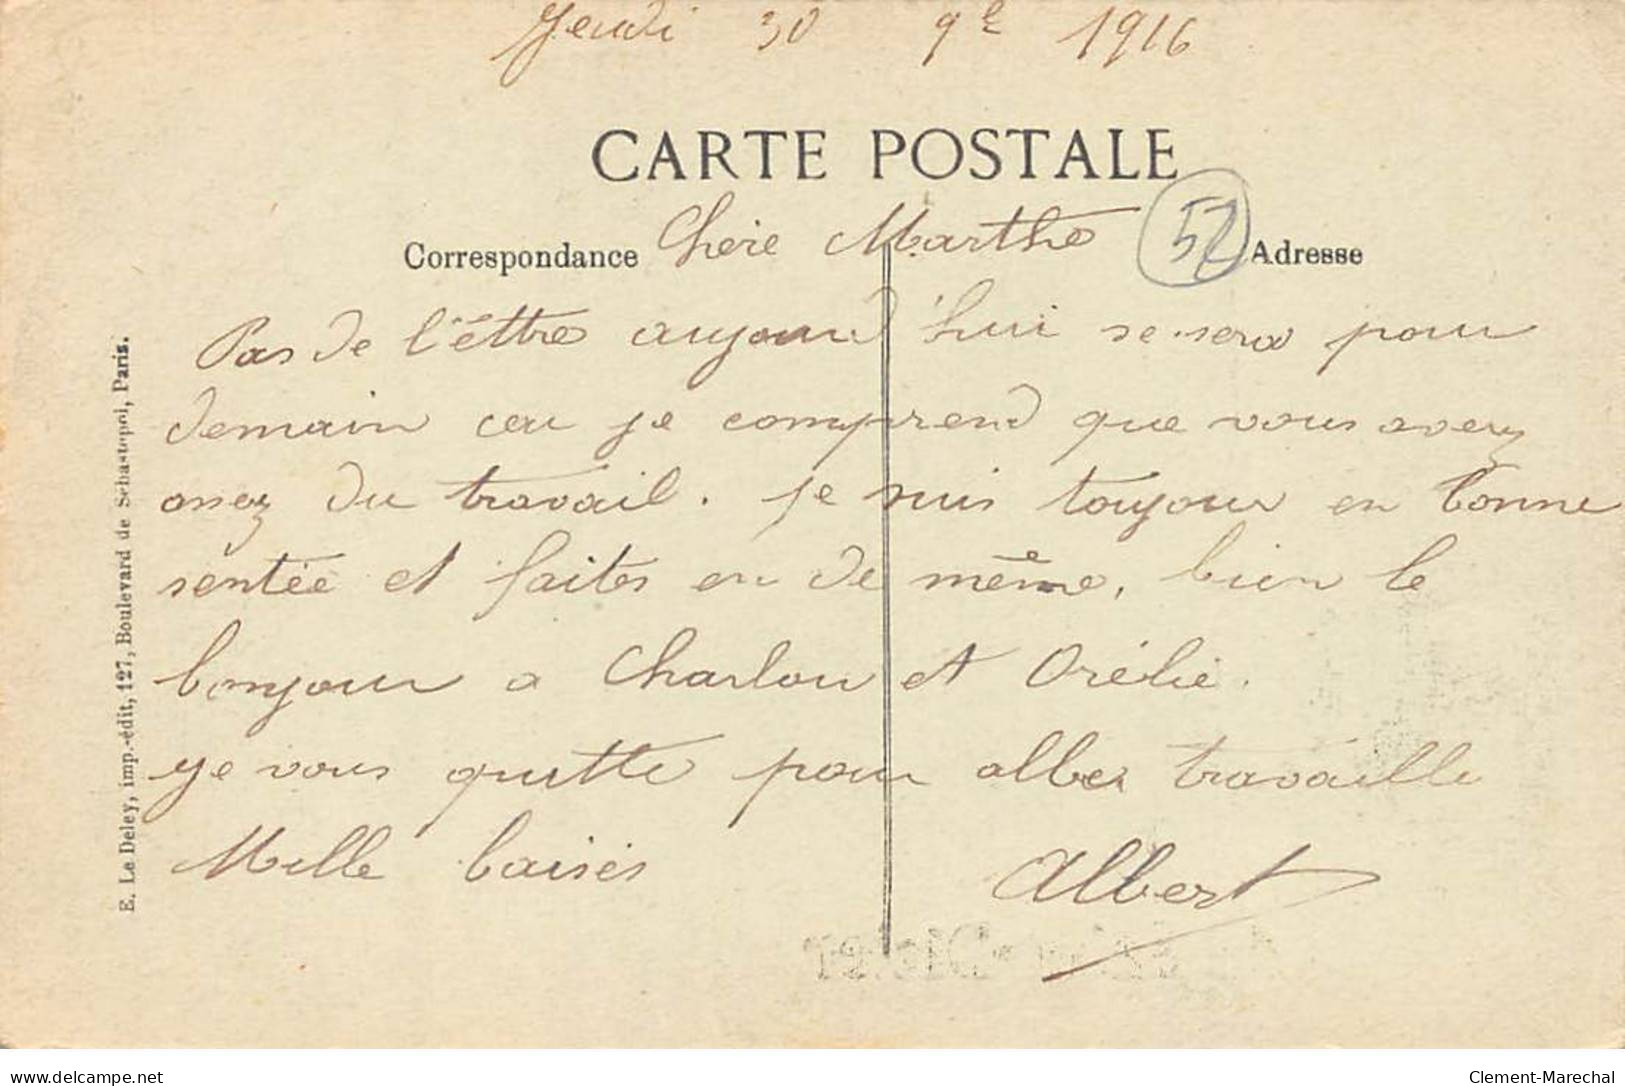 Jeudi 30 9e 1916
CARTE POSTALE
Correspondance Chère Marthe 52 Adresse
Pas de l'èttre aujourd'hui se sera pour
demain car je comprend que vous averz
assez du travail. Je suis toujour en bonne
sentée et faites en de même, bien le
bonjour a Charlou et Orélie.
Je vous quitte pour alles travaille
Mille baisés Albert
E. Le Deley, imp.-édit, 127, Boulevard de Sébastopol, Paris.
delcampe.net
Clement-Marechal